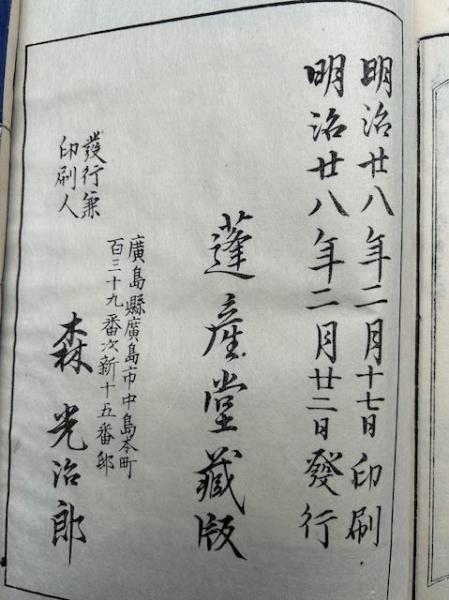 明治廿八年二月十七日印刷
明治廿八年二月廿二日發行
蓬産堂藏版
廣島縣廣島市中島本町
百三十九番次新十五番邸
發行兼
印刷人
森光治郎